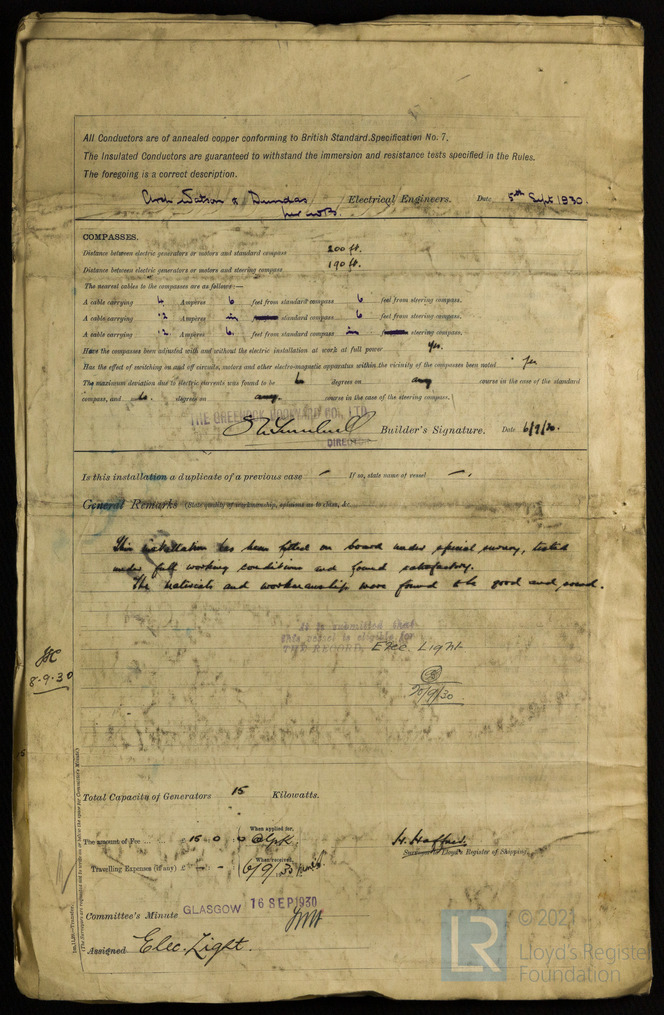 All Conductors are of annealed copper conforming to British Standard Specification No. 7.
The Insulated Conductors are guaranteed to withstand the immersion and resistance tests specified in the Rules.
The foregoing is a correct description.
Watson & Dundas Electrical Engineers. Date 5th Sept 1930.
COMPASSES.
Distance between electric generators or motors and standard compass 200 ft.
Distance between electric generators or motors and steering compass 190 ft.
The nearest cables to the compasses are as follows:—
A cable carrying 4 Ampères 6 feet from standard compass 6 feet from steering compass.
A cable carrying .2 Ampères in standard compass 6 feet from steering compass.
A cable carrying .2 Ampères 6 feet from standard compass in steering compass.
Have the compasses been adjusted with and without the electric installation at work at full power Yes.
Has the effect of switching on and off circuits, motors and other electro-magnetic apparatus within the vicinity of the compasses been noted Yes
The maximum deviation due to electric currents was found to be degrees on any course in the case of the standard
compass, and degrees on any course in the case of the steering compass.
THE GREENOCK DOCKYARD CO., LTD.
Builder's Signature. Date 6/9/30.
DIRECTOR
Is this installation a duplicate of a previous case – If so, state name of vessel –.
General Remarks (State quality of workmanship, opinions as to class, &c.
This installation has been fitted on board under special survey, tested
under full working conditions and found satisfactory.
The materials and workmanship were found to be good and sound.
It is submitted that
this vessel is eligible for
THE RECORD, Elec. Light
8.9.30
/9/30.
Total Capacity of Generators 15 Kilowatts.
The amount of Fee ... 15 0 0 When applied for,
Travelling Expenses (if any) £ - When received, 6/9/30
Surveyor to Lloyd's Register of Shipping.
Committee's Minute GLASGOW 16 SEP 1930
Assigned Elec. Light.
(The Surveyors are requested not to write on or below the space for Committee's Minute.)
LR
© 2021
Lloyd's Register
Foundation